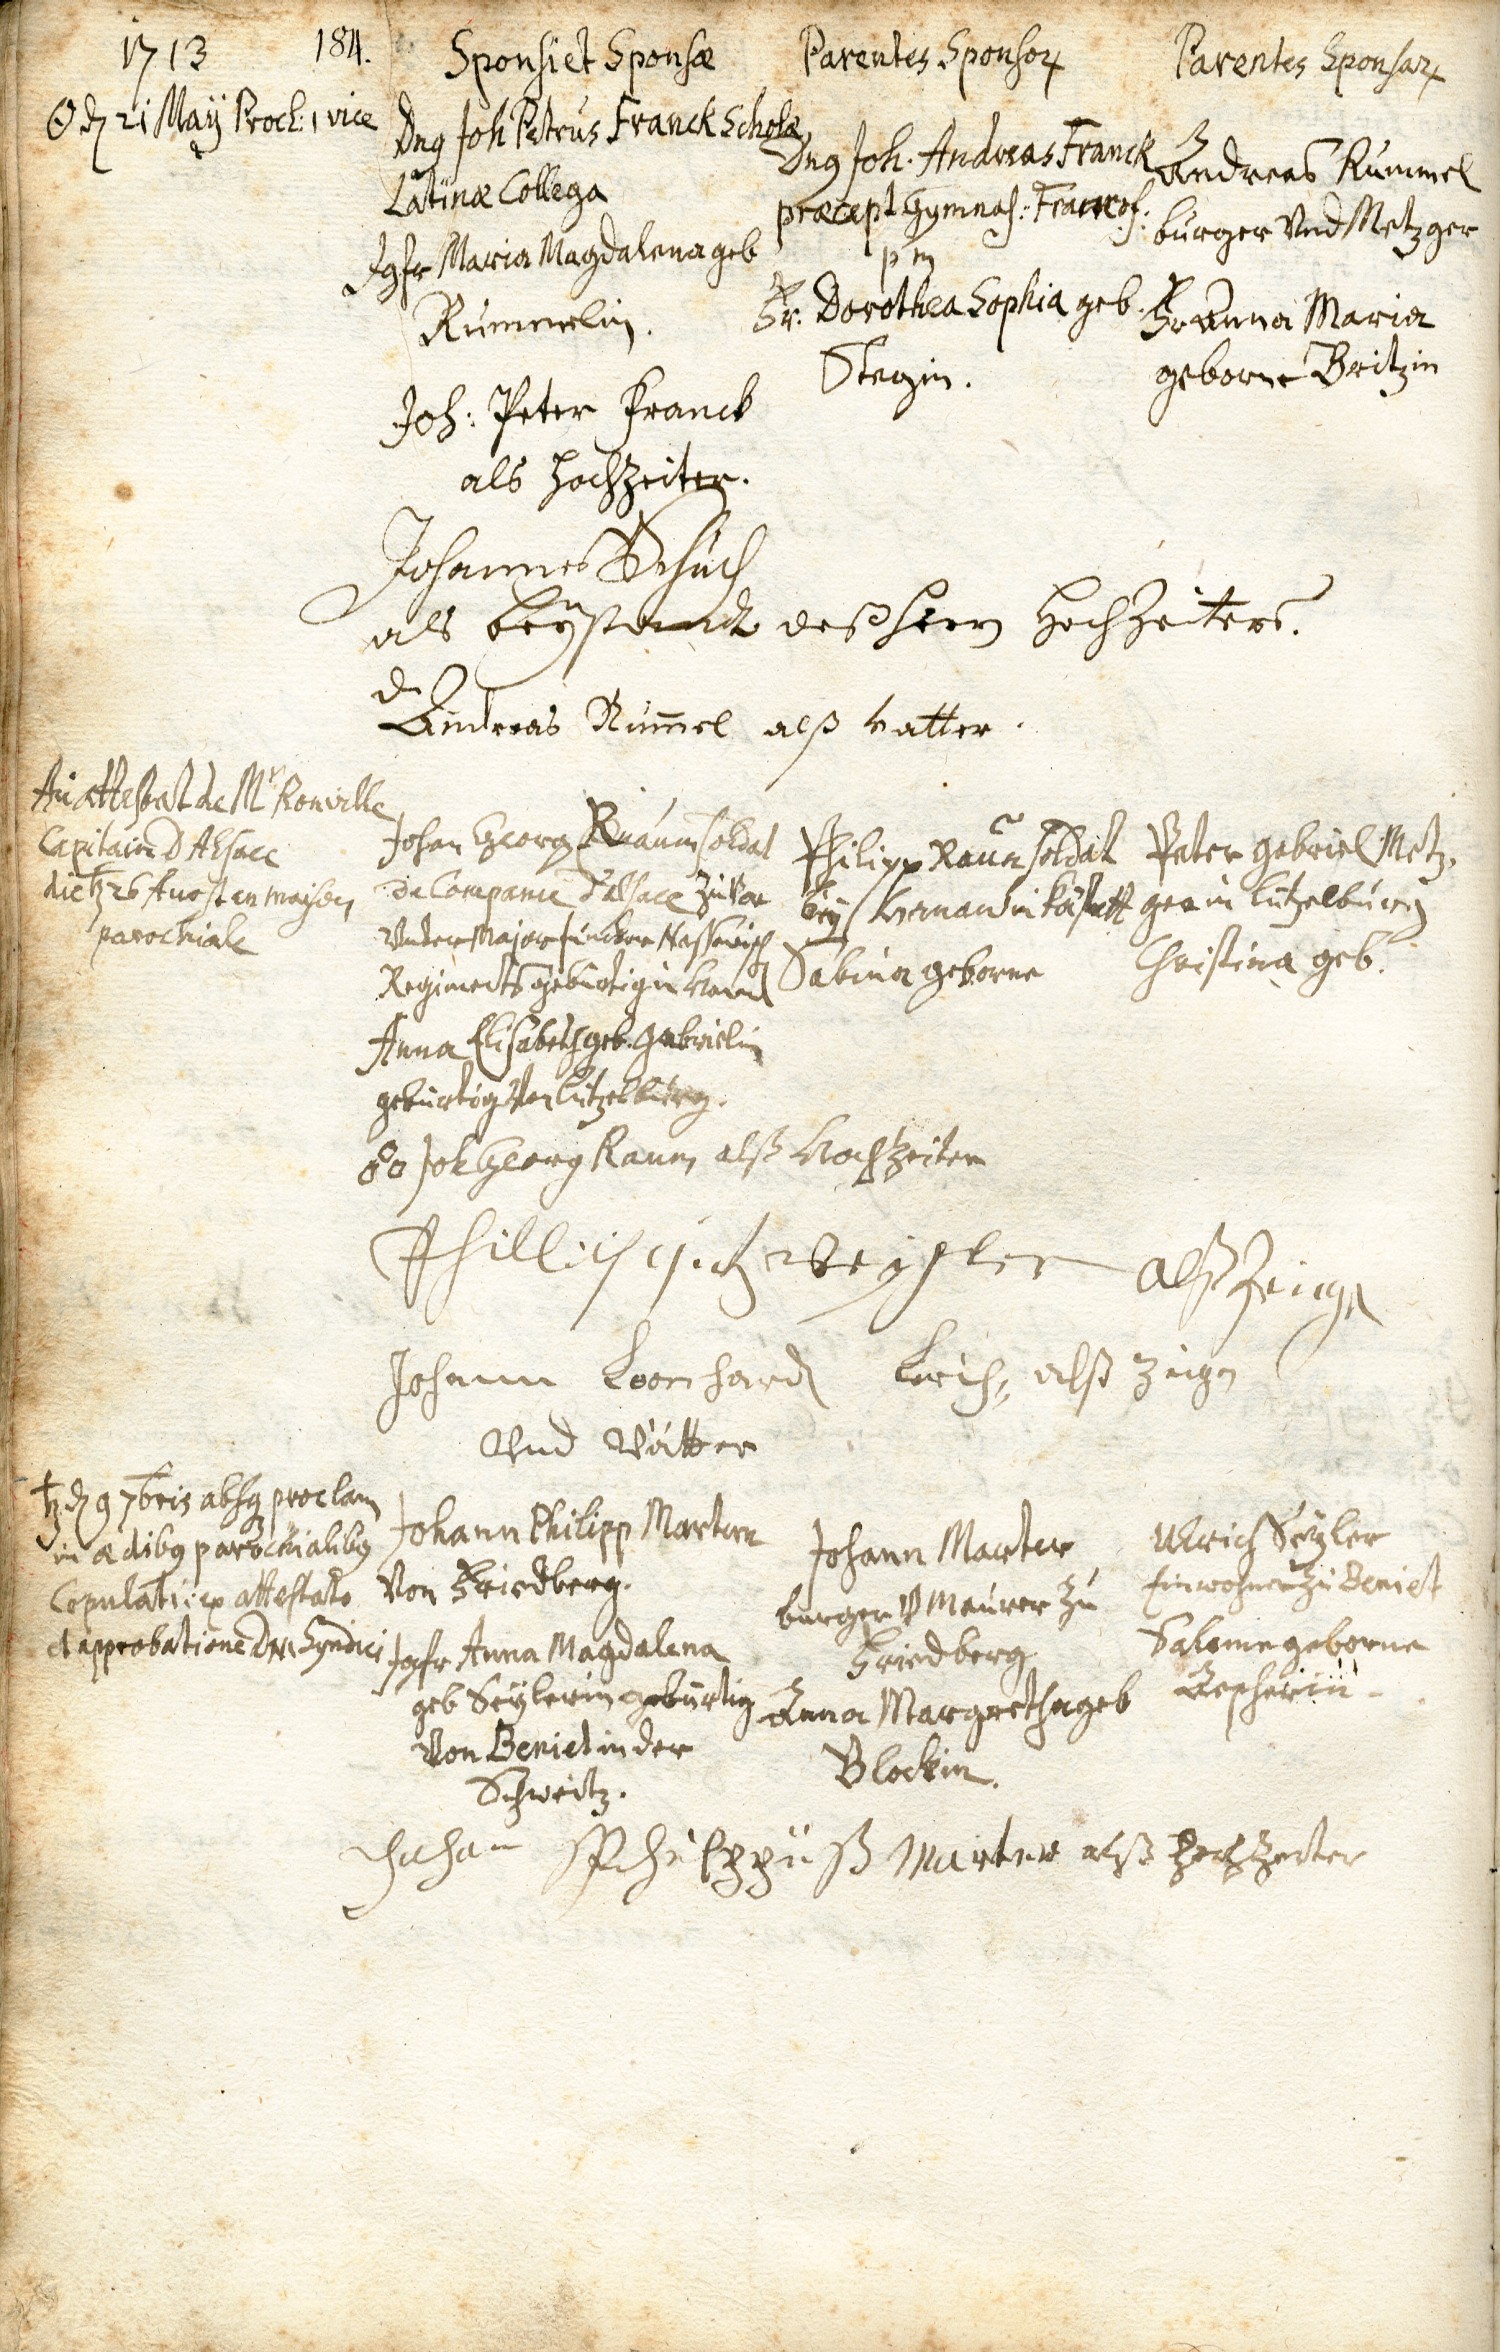 1713
184.
Sponsi et Sponsæ
Parentes Sponsor
Parentes Sponsar
21 Maÿ Procl: 1 vice
Dn9 Joh Petrus Franck Scholæ
Latinæ Collega
Jgfr Maria Magdalena geb
Rümmelin.
Dn9 Joh. Andreas Franck
præcept Gymnas: Francof:
p m
Fr. Dorothea Sophia geb.
Stegin.
Andreas Rummel
burger Und Metzger
Fr Anna Maria
geborne Britzin
Joh: Peter Franck
als Hochzeiter.
Johannes Schüch
als beystandt deß Herrn Hochzeiters.
Andreas Rum̄el alß vatter.
Au attestat de Mr Ronville
Capitain D Alsace
die 26 Aug en maison
parochiale
Johan Georg Raum soldat
de Companie d'alsace
Under Major
Regiments gebürtig in
Anna Elisabeth geb. Gabrielin
gebürtig von Lützelburg.
Philipp Raum soldat
beÿ
Sabina geborne
Peter Gabriel Metz-
ger in Lützelburg
Christina geb.
Joh Georg Raum alß Hochzeiter
alß Zeuge
Johann Leonhard alß zeugn
Und Vätter
d 9 7bris absq proclam
in ædibq parochialibq
Copulati: ex attestato
et approbatione Dni Syndici
Johann Philipp Marter
Von Friedberg.
Jgfr Anna Magdalena
geb Seÿlerin gebürtig
Von Beniet in der
Schweitz.
Johann Marter
burger V Maurer Zu
Friedberg
Anna Margretha geb
Blockin.
Ulrich Seÿler
Einwohner Zu Beniet
Salome geborne
Johan Philippüß Marter alß Hochzeiter